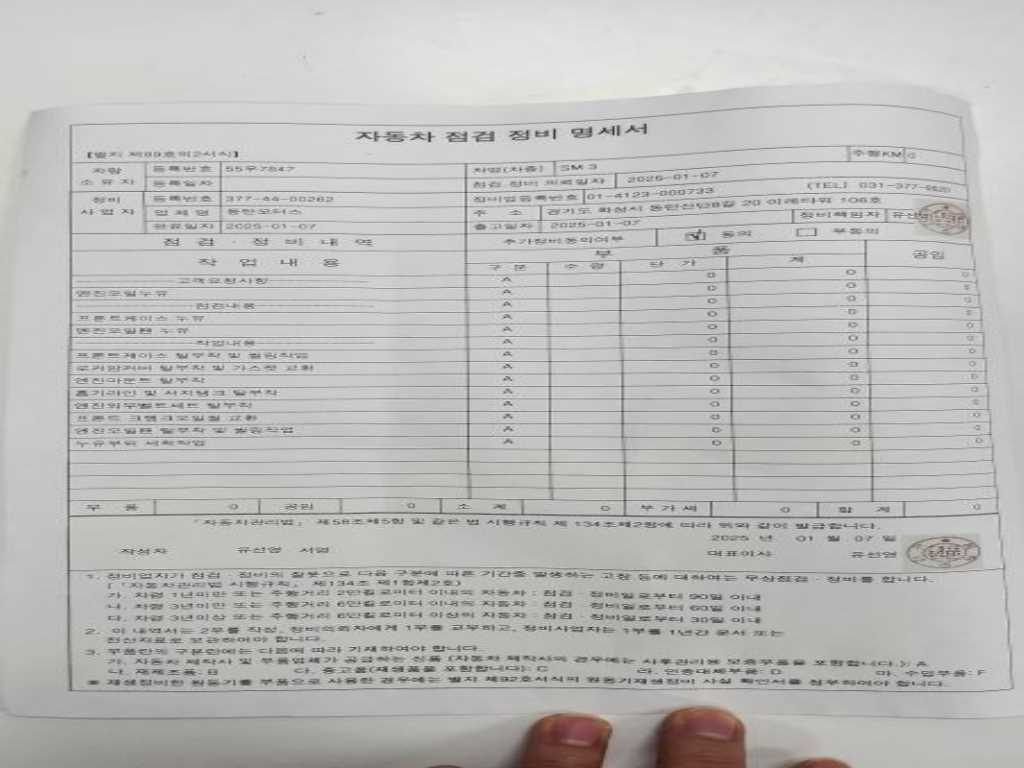 자동차 점검 정비 명세서
[별지 제89호의2서식] 주행KM 0
차량 소유자 등록번호 55우7847 차명(차종) SM 3
등록일자 점검 정비 의뢰일자 2025-01-07
정비 사업자 등록번호 377-44-00262 정비업등록번호 01-4123-000733 (TEL) 031-377-
업체명 동탄모터스 주 소 경기도 화성시 동탄산단8길 20 이레타워 106호
완료일자 2025-01-07 출고일자 2025-01-07 정비책임자 유선영
점 검 · 정 비 내 역 추가정비동의여부 동의 부동의
작 업 내 용 부 품 공임
구 분 수 량 단 가 계
고객요청사항 A 0 0 0
엔진오일누유 A 0 0 0
점검내용 A 0 0 0
프론트케이스 누유 A 0 0 0
엔진오일팬 누유 A 0 0 0
작업내용 A 0 0 0
프론트케이스 탈부착 및 씰링작업 A 0 0 0
로커암커버 탈부착 및 가스켓 교환 A 0 0 0
엔진마운트 탈부착 A 0 0 0
흡기라인 및 서지탱크 탈부착 A 0 0 0
엔진외부벨트세트 탈부착 A 0 0 0
프론트 크랭크오일씰 교환 A 0 0 0
엔진오일팬 탈부착 및 씰링작업 A 0 0 0
누유부위 세척작업 A 0 0 0
부 품 0 공임 0 소 계 0 부 가 세 0 합 계 0
「자동차관리법」 제58조제5항 및 같은 법 시행규칙 제 134조제2항에 따라 위와 같이 발급합니다.
2025 년 01 월 07 일
작성자 유선영 서명 대표이사 유선영
1. 정비업자가 점검 · 정비의 잘못으로 다음 구분에 따른 기간중 발생하는 고장 등에 대하여는 무상점검 · 정비를 합니다.
(「자동차관리법 시행규칙」 제134조 제1항제2호)
가. 차령 1년미만 또는 주행거리 2만킬로미터 이내의 자동차 : 점검 · 정비일로부터 90일 이내
나. 차령 3년미만 또는 주행거리 6만킬로미터 이내의 자동차 : 점검 · 정비일로부터 60일 이내
다. 차령 3년이상 또는 주행거리 6만킬로미터 이상의 자동차 : 점검 · 정비일로부터 30일 이내
2. 이 내역서는 2부를 작성, 정비의뢰자에게 1부를 교부하고, 정비사업자는 1부를 1년간 문서 또는
전산자료로 보관하여야 합니다.
3. 부품란의 구분란에는 다음에 따라 기재하여야 합니다.
가. 자동차 제작사 및 부품업체가 공급하는 신품 (자동차 제작사의 경우에는 사후관리용 보증부품을 포함합니다.): A
나. 재제조품: B 다. 중고품(재생품을 포함합니다): C 라. 인증대체부품: D 마. 수입부품: F
※ 재생정비한 원동기를 부품으로 사용한 경우에는 별지 제92호서식의 원동기재생정비 사실 확인서를 첨부하여야 합니다.